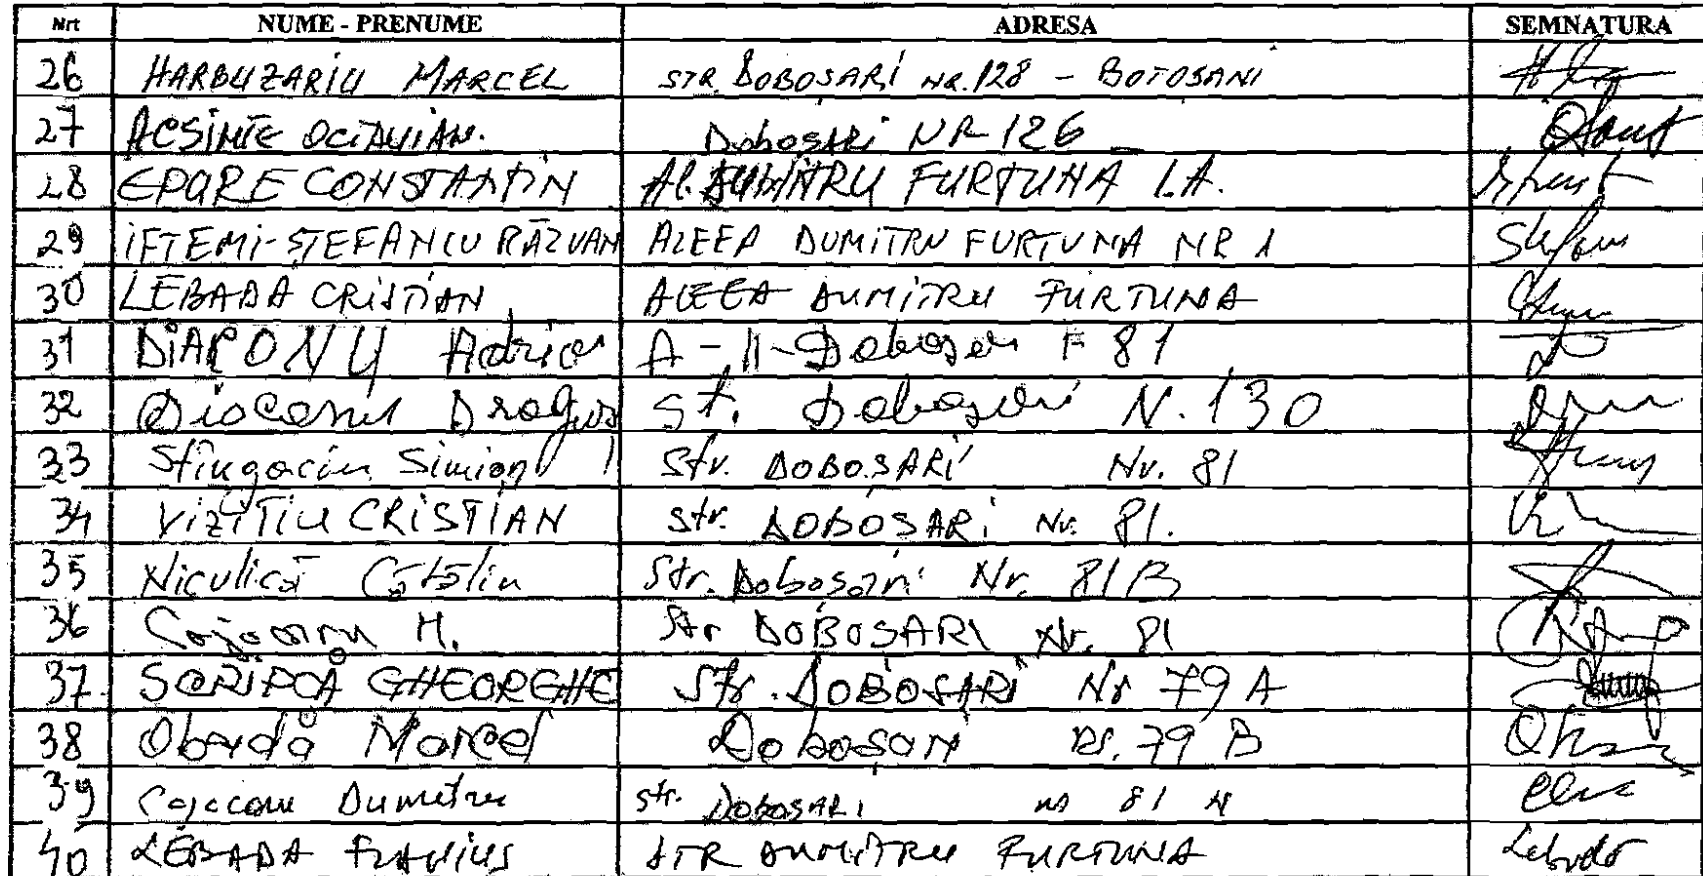 Nrt NUME - PRENUME ADRESA SEMNATURA
26 HARBUZARIU MARCEL STR. DOBOSARI NR. 128 - BOTOSANI
27 ACSINTE OCTAVIAN. Doboșari NR 126
28 EPURE CONSTANTIN Al. DUMITRU FURTUNA 1.A.
29 IFTEMI-STEFANCU RĂZVAN ALEEA DUMITRU FURTUNA NR 1
30 LEBADĂ CRISTIAN ALEEA DUMITRU FURTUNA
31 DIACONU Adrian 81
32 Diaconu Dragoș St. Doboșari N. 130
33 Simion Str. DOBOSARI Nr. 81
34 VIZITIU CRISTIAN str. DOBOSARI Nr. 81.
35 Niculică Cătălin Str. Dobosari Nr. 81B
36 Cojocaru M. Str DOBOSARI Nr. 81
37 SCRIPCĂ GHEORGHE Str. DOBOSARI Nr 79 A
38 Obadă Marcel Dobosari nr. 79 B
39 Cojocaru Dumitru str. DOBOSARI 81
40 LEBADA FLAVIUS STR DUMITRU FURTUNA